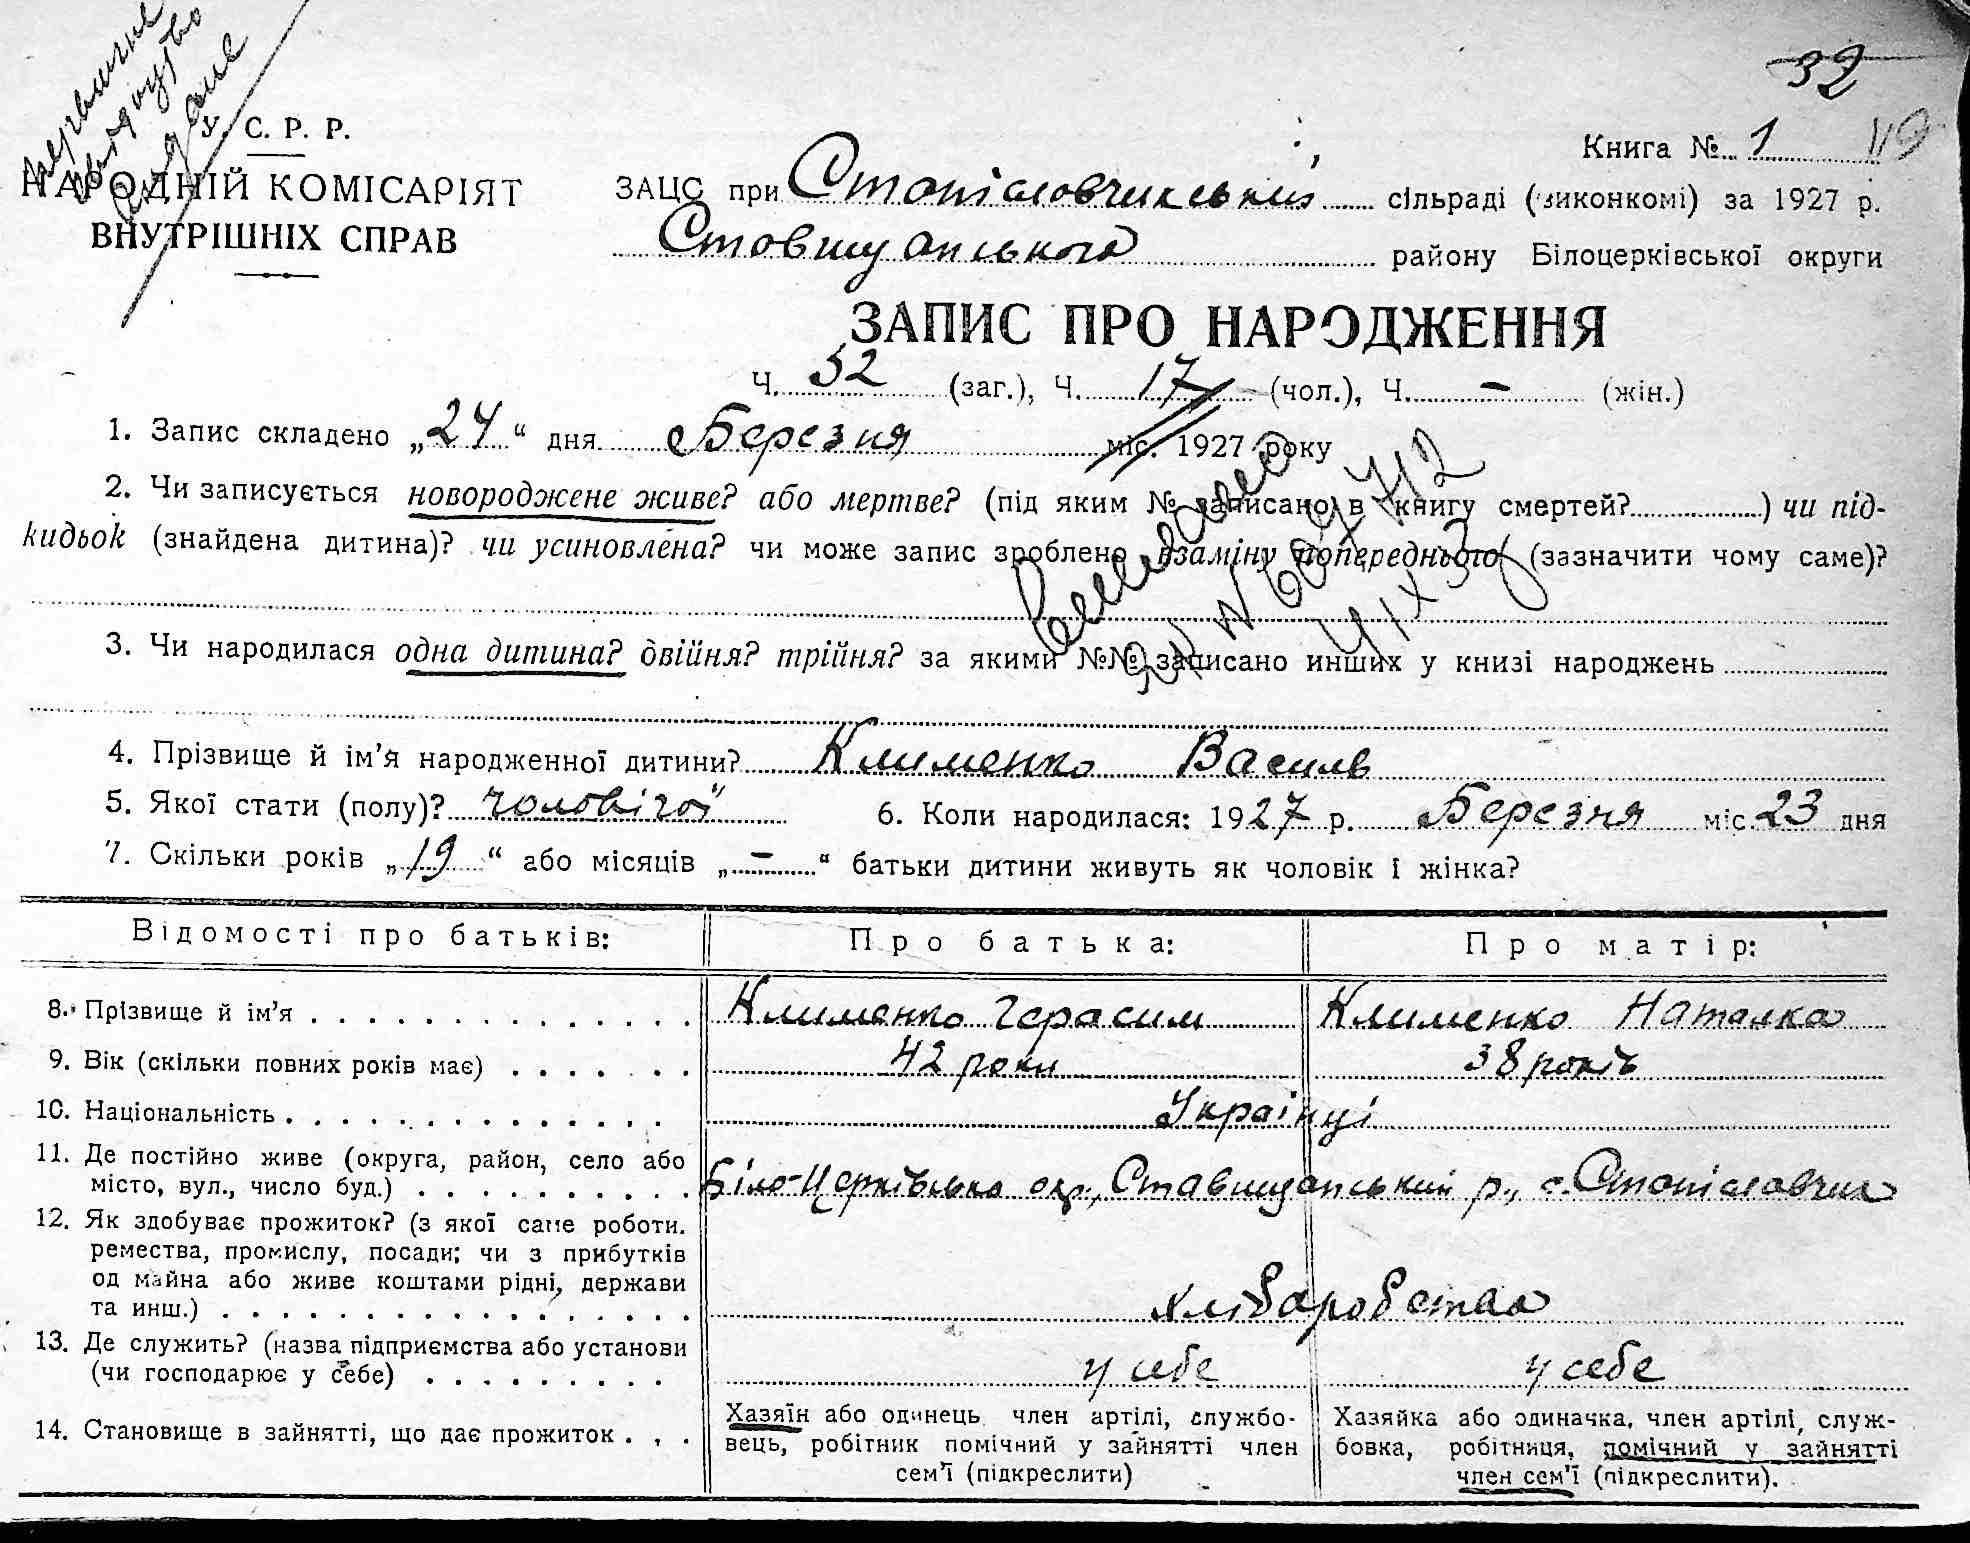 первичне
свідоцтво
видане
32
У. С. Р. Р.
Книга № 1 119
НАРОДНІЙ КОМІСАРІЯТ
ВНУТРІШНІХ СПРАВ
ЗАЦС при Станіславчикській сільраді (виконкомі) за 1927 р.
Ставищанського району Білоцерківської округи
ЗАПИС ПРО НАРОДЖЕННЯ
Ч. 32 (заг.), Ч. 17 (чол.), Ч. – (жін.)
1. Запис складено „24“ дня Березня міс. 1927 року
2. Чи записується новороджене живе? або мертве? (під яким № записано в книгу смертей? ) чи під-
кидьок (знайдена дитина)? чи усиновлена? чи може запис зроблено взаміну попереднього (зазначити чому саме)?
3. Чи народилася одна дитина? двійня? трійня? за якими №№ записано инших у книзі народжень
4. Прізвище й ім’я народженної дитини? Клименко Василь
5. Якої стати (полу)? чоловічої 6. Коли народилася: 1927 р. Березня міс. 23 дня
7. Скільки років „19“ або місяців „–“ батьки дитини живуть як чоловік і жінка?
Відомості про батьків: Про батька: Про матір:
8. Прізвище й ім’я Клименко Герасим Клименко Наталка
9. Вік (скільки повних років має) 42 роки 38 років
10. Національність Українці
11. Де постійно живе (округа, район, село або
місто, вул., число буд.) Біло-Церківська окр., Ставищанський р., с. Станіславчик
12. Як здобуває прожиток? (з якої саме роботи.
ремества, промислу, посади; чи з прибутків
од майна або живе коштами рідні, держави
та инш.) хліборобства
13. Де служить? (назва підприємства або установи
(чи господарює у себе) у себе у себе
14. Становище в зайнятті, що дає прожиток Хазяїн або одинець, член артілі, службо-
вець, робітник помічний у зайнятті член
сем’ї (підкреслити)
Хазяйка або одиначка, член артілі, служ-
бовка, робітниця, помічний у зайнятті
член сем’ї (підкреслити).